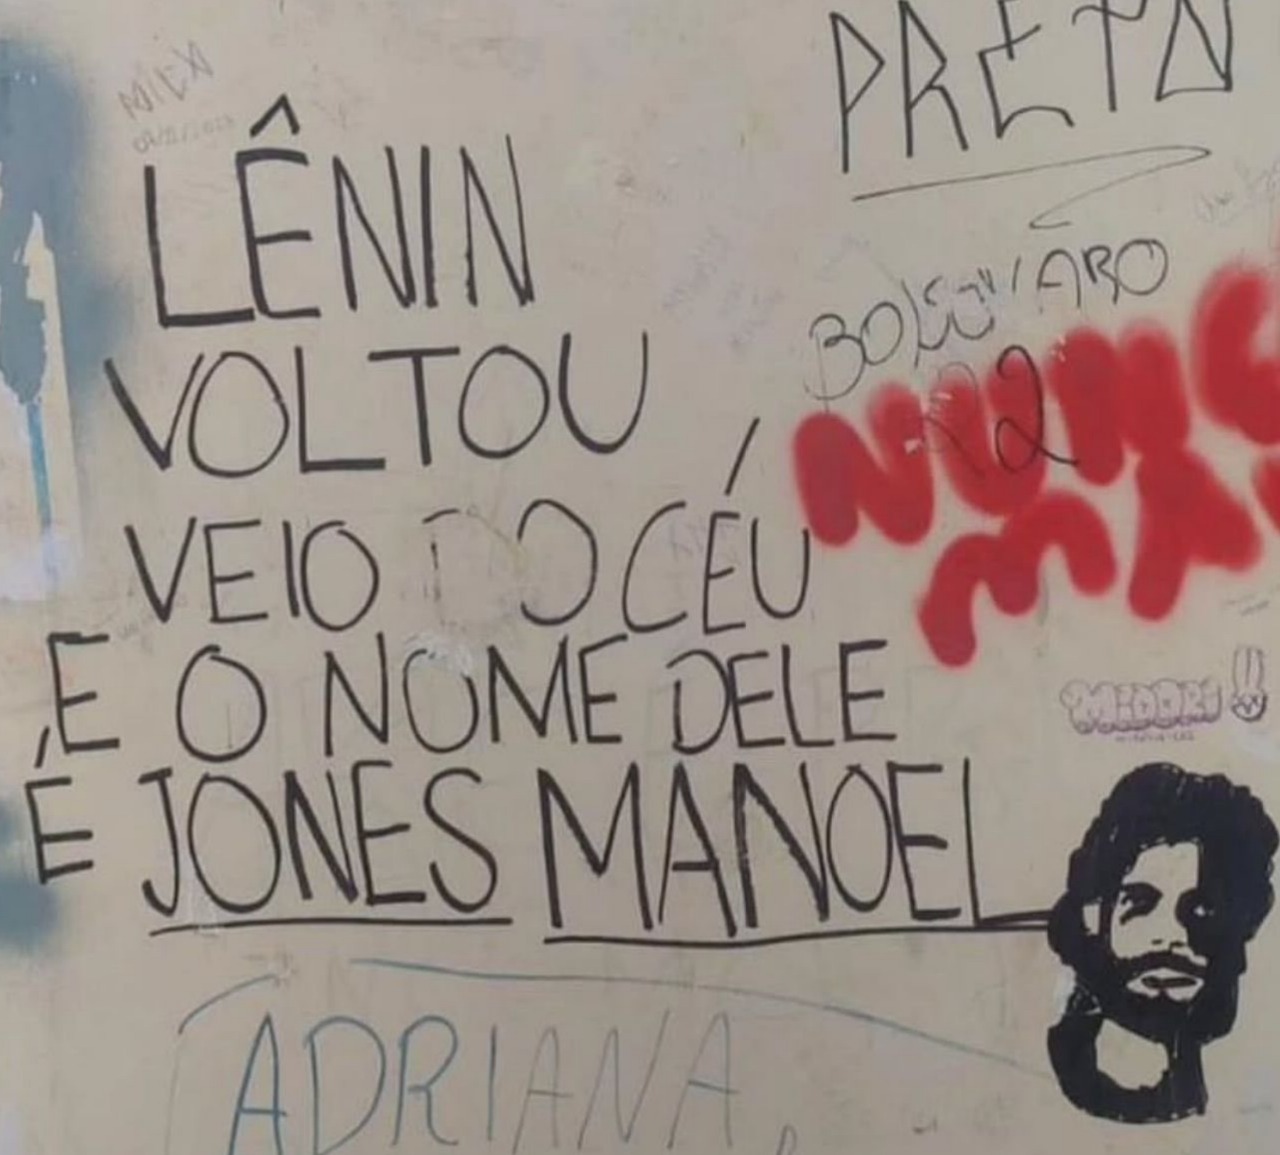 PRETA
LÊNIN
VOLTOU
VEIO DO CÉU
E O NOME DELE
É JONES MANOEL
BOLSONARO
22
NUNC
MA
MIDORI
ADRIANA